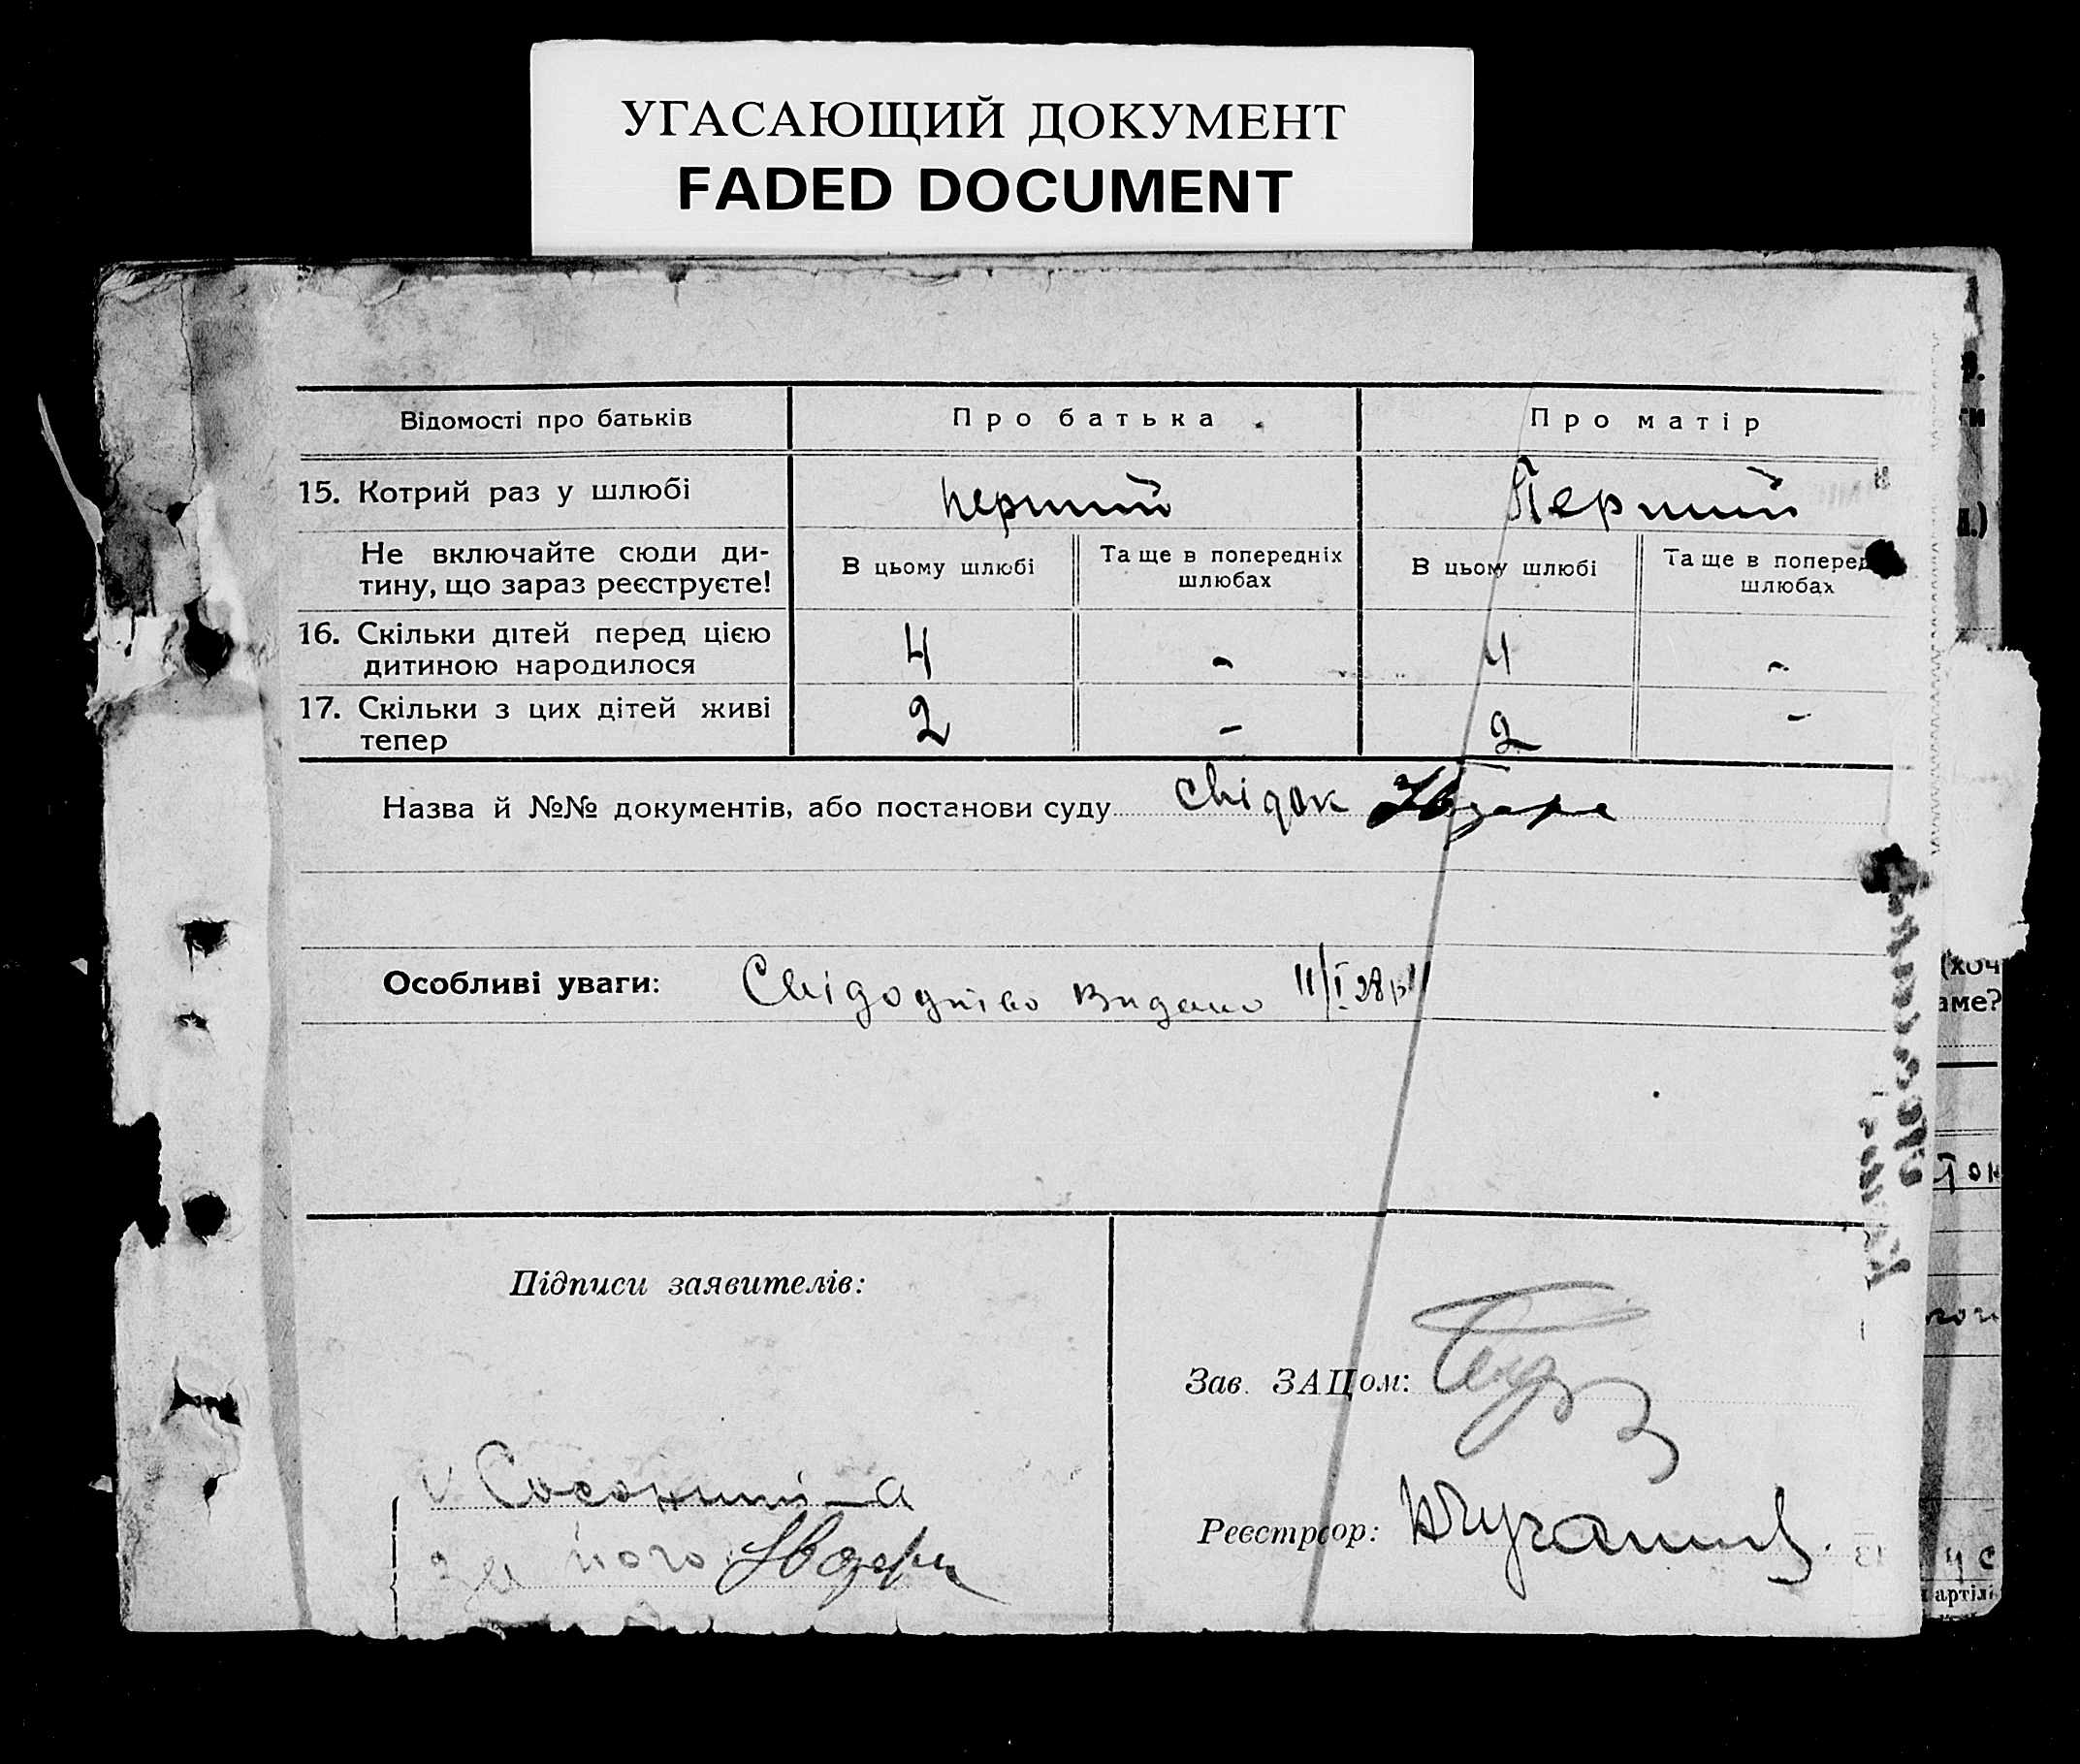 УГАСАЮЩИЙ ДОКУМЕНТ
FADED DOCUMENT
Відомості про батьків
Про батька
Про матір
15. Котрий раз у шлюбі
перший
Перший
Не включайте сюди ди-
тину, що зараз реєструєте!
В цьому шлюбі
Та ще в попередніх
шлюбах
В цьому шлюбі
Та ще в поперед
шлюбах
16. Скільки дітей перед цією
дитиною народилося
4
-
4
-
17. Скільки з цих дітей живі
тепер
2
-
2
-
Назва й №№ документів, або постанови суду
свідок
Особливі уваги:
видано 11/I 28
Підписи заявителів:
Зав. ЗАЦом:
за його
Реєстрсор:
(хоч
аме?
артілі